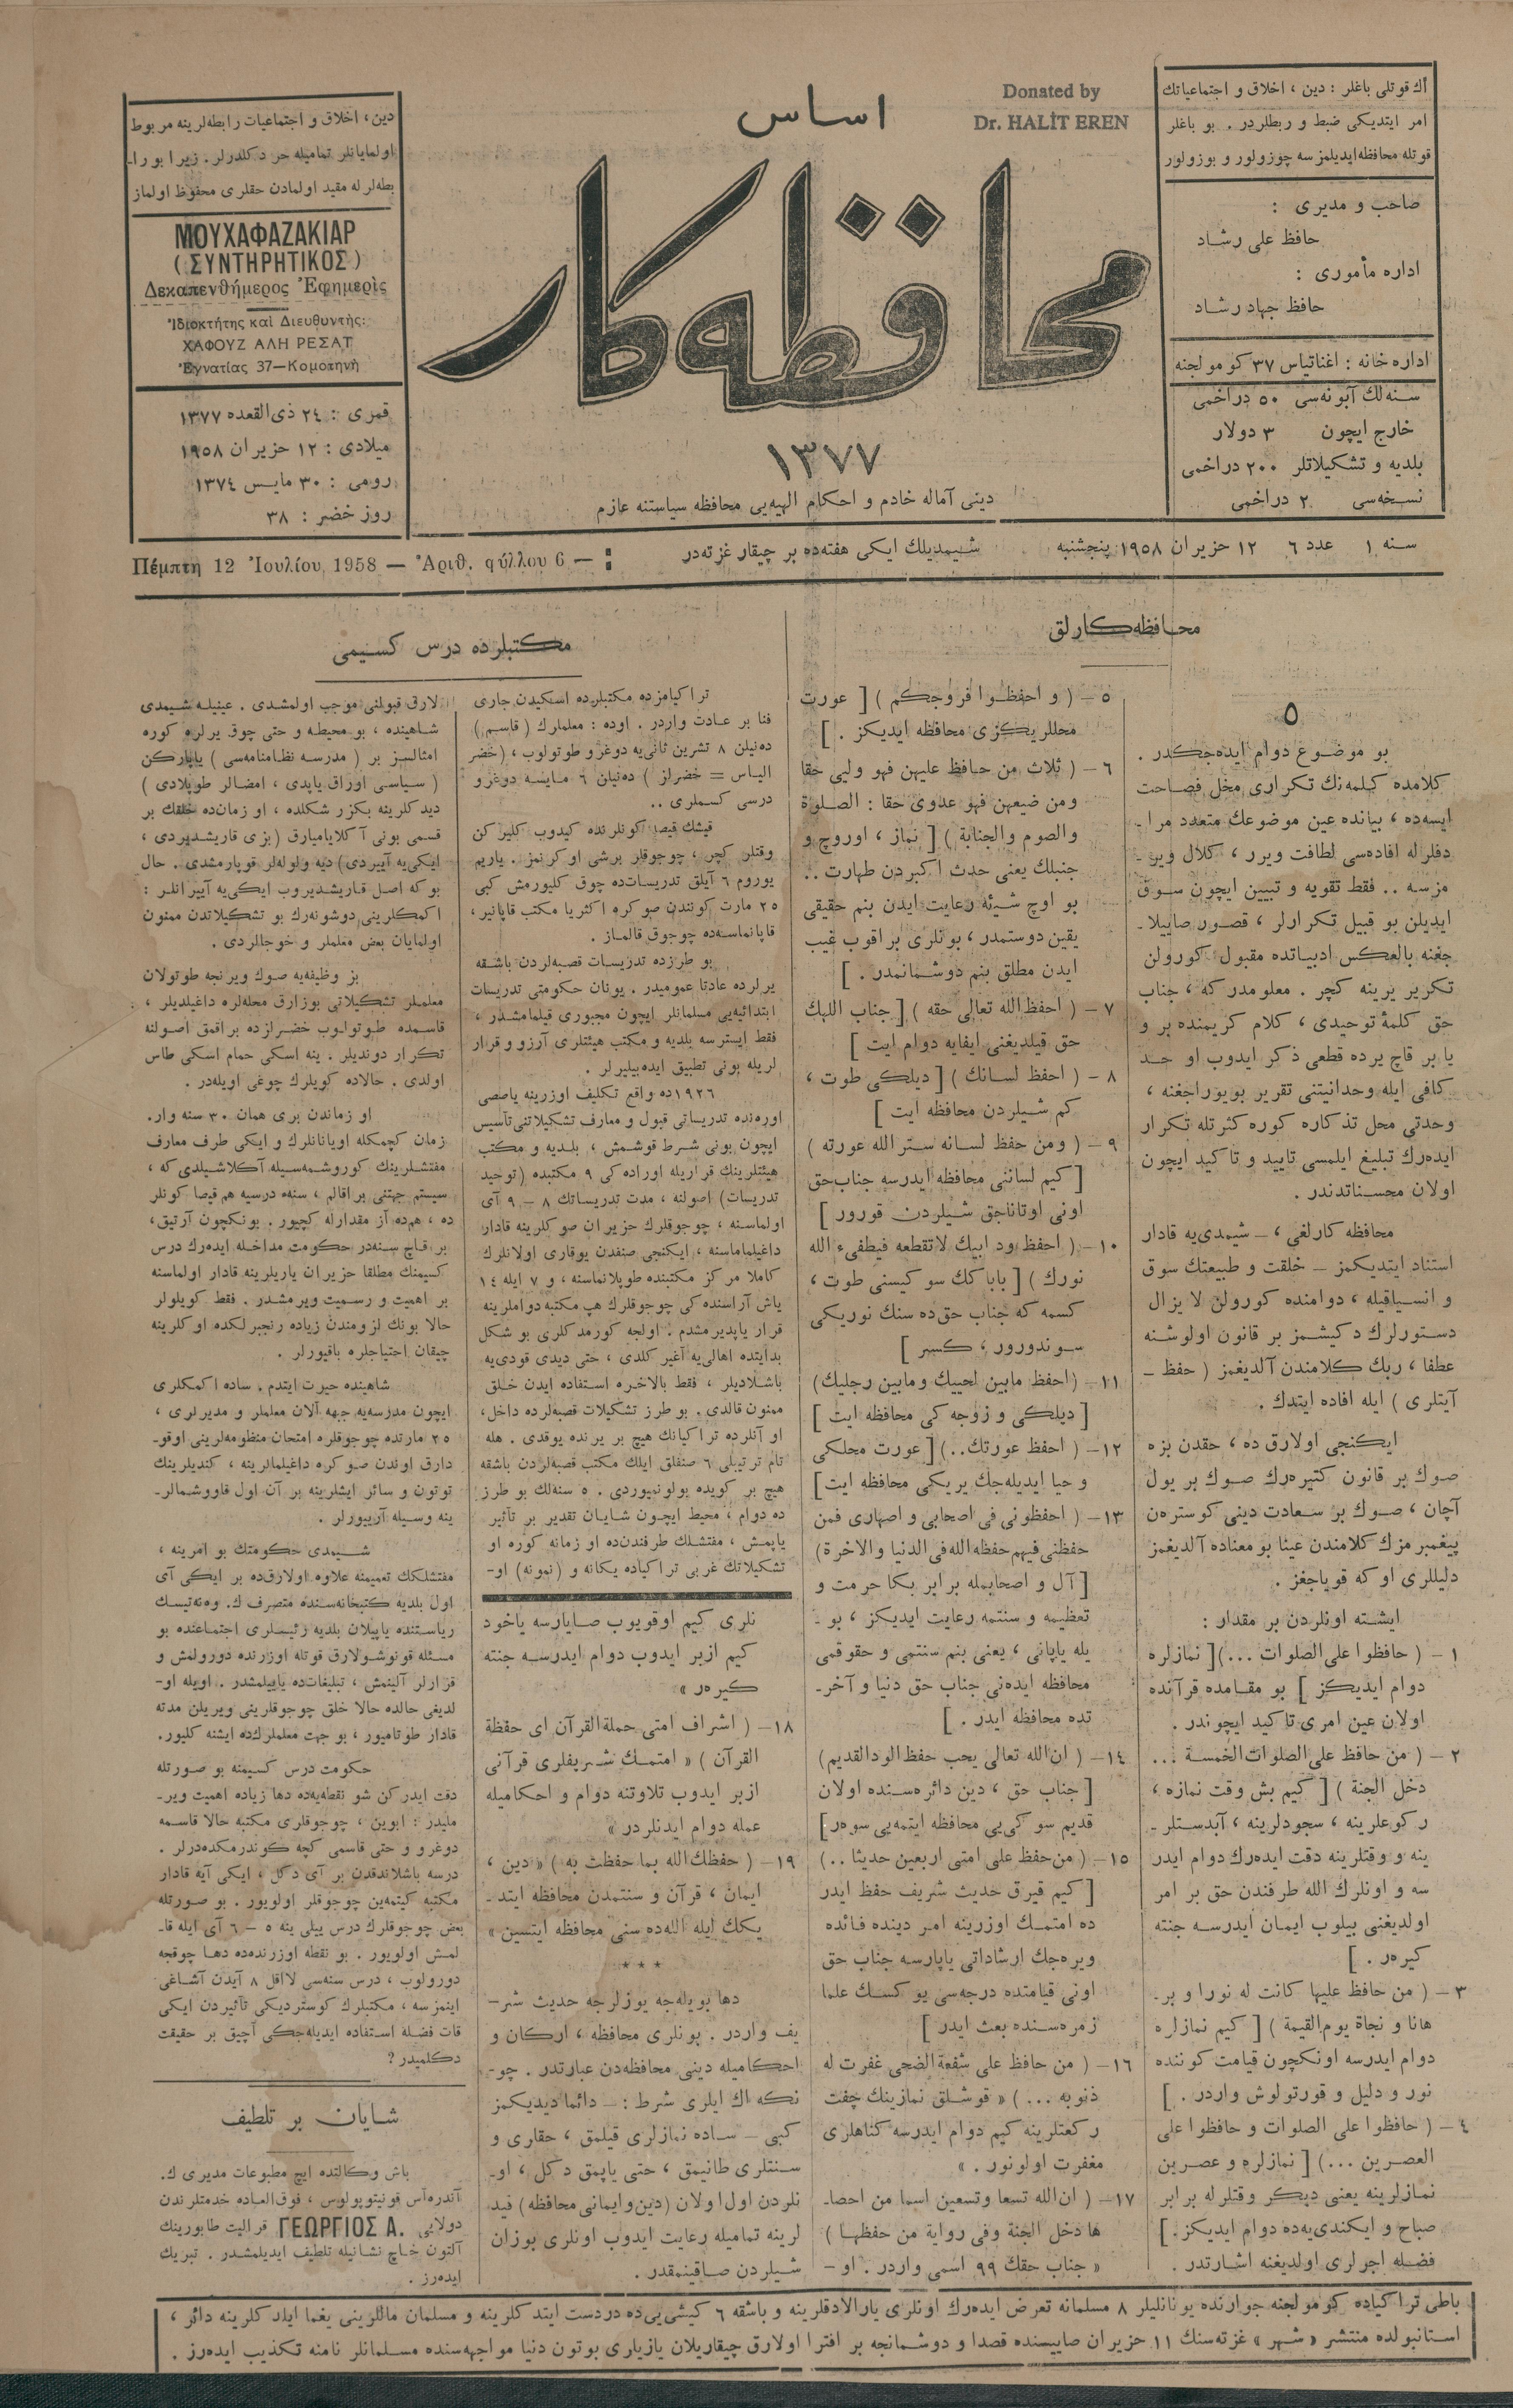 Donated by
Dr. HALİT EREN
اساس
محافظه‌كار
١٣٧٧
دينی آماله خادم و احكام الهيه‌يی محافظه سياستنه عازم
اڭ قوتلی باغلر : دين ، اخلاق و اجتماعياتك
امر ايتديكی ضبط و ربطلردر . بو باغلر
قوتله محافظه ايديلمزسه چوزولور و بوزولور
صاحب و مديری :
حافظ علی رشاد
اداره مأموری :
حافظ جهاد رشاد
اداره خانه : اغناتياس ٣٧ كومولجنه
سنه‌لك آبونه‌سی ٥٠ دراخمی
خارج ايچون ٣ دولار
بلديه و تشكيلاتلر ٢٠٠ دراخمی
نسخه‌سی ٢ دراخمی
دين، اخلاق و اجتماعيات رابطه‌لرينه مربوط
اولمايانلر تماميله حر دكلدرلر . زيرا بو را‌ـ
بطه‌لر له مقيد اولمادن حقلری محفوظ اولماز
ΜΟΥΧΑΦΑΖΑΚΙΑΡ
(ΣΥΝΤΗΡΗΤΙΚΟΣ)
Δεκαπενθήμερος Ἐφημερὶς
Ἰδιοκτήτης καὶ Διευθυντὴς:
ΧΑΦΟΥΖ ΑΛΗ ΡΕΣΑΤ
Ἐγνατίας 37—Κομοτηνὴ
قمری : ٢٤ ذی‌القعده ١٣٧٧
ميلادی : ١٢ حزيران ١٩٥٨
رومی : ٣٠ مايس ١٣٧٤
روز خضر : ٣٨
سنه ١ عدد ٦ ١٢ حزيران ١٩٥٨ پنجشنبه
شيمديلك ايكی هفته‌ده بر چيقار غزته‌در
Πέμπτη 12 Ἰουλίου 1958 — Ἀριθ. φύλλου 6 —
محافظه‌كارلق
٥
بو موضوع دوام ايده‌جكدر .
كلامده كلمه‌نك تكراری مخل فصاحت
ايسه‌ده ، بيانده عين موضوعك متعدد مرا‌ـ
دفلر له افاده‌سی لطافت ويرر ، كلال وير‌ـ
مزسه .. فقط تقويه و تبيين ايچون سوق
ايديلن بو قبيل تكرارلر ، قصور صاييلا‌ـ
جغنه بالعكس ادبياتده مقبول كورولن
تكرير يرينه كچر . معلومدر كه ، جناب
حق كلمهٔ توحيدی ، كلام كريمنده بر و
يا بر قاچ يرده قطعی ذكر ايدوب او حد
كافی ايله وحدانيتنی تقرير بويوراجغنه ،
وحدتی محل تذكاره كوره كثرتله تكرار
ايده‌رك تبليغ ايلمسی تاييد و تاكيد ايچون
اولان محسناتدندر .
محافظه كارلغی ، ـ شيمدی‌يه قادار
استناد ايتديكمز ـ خلقت و طبيعتك سوق
و انسياقيله ، دوامنده كورولن لا يزال
دستورلرك دكيشمز بر قانون اولوشنه
عطفا ، ربك كلامندن آلديغمز ( حفظ ـ
آيتلری ) ايله افاده ايتدك .
ايكنجی اولارق ده ، حقدن بزه
صوك بر قانون كتيره‌رك صوك بر يول
آچان ، صوك بر سعادت دينی كوستره‌ن
پيغمبر مزك كلامندن عينا بو معناده آلديغمز
دليللری او كه قوياجغز .
ايشته اونلردن بر مقدار :
١ ـ ( حافظوا علی الصلوات ...) [ نمازلره
دوام ايديكز ] بو مقامده قرآنده
اولان عين امری تاكيد ايچوندر .
٢ ـ ( من حافظ علی الصلوات الخمسة ...
دخل الجنة ) [ كيم بش وقت نمازه ،
ركوعلرينه ، سجودلرينه ، آبدستلر‌ـ
ينه و وقتلرينه دقت ايده‌رك دوام ايدر
سه و اونلرك الله طرفندن حق بر امر
اولديغنی بيلوب ايمان ايدرسه جنته
كيره‌ر . ]
٣ ـ ( من حافظ عليها كانت له نورا و بر‌ـ
هانا و نجاة يوم القيمة ) [ كيم نمازلره
دوام ايدرسه اونكچون قيامت كوننده
نور و دليل و قورتولوش واردر . ]
٤ ـ ( حافظوا علی الصلوات و حافظوا علی
العصرين ...) [ نمازلره و عصرين
نمازلرينه يعنی ديكر وقتلر له برابر
صباح و ايكندی‌يه‌ده دوام ايديكز . ]
فضله اجرلری اولديغنه اشارتدر .
٥ ـ ( و احفظوا فروجكم ) [ عورت
محللريكزی محافظه ايديكز . ]
٦ ـ ( ثلاث من حافظ عليهن فهو وليی حقا
ومن ضيعهن فهو عدوی حقا : الصلوة
والصوم والجنابة ) [ نماز ، اوروچ و
جنبلك يعنی حدث اكبردن طهارت ..
بو اوچ شيئه رعايت ايدن بنم حقيقی
يقين دوستمدر ، بونلری براقوب غيب
ايدن مطلق بنم دوشمانمدر . ]
٧ ـ ( احفظ الله تعالی حقه ) [ جناب اللهك
حق قيلديغنی ايفايه دوام ايت ]
٨ ـ ( احفظ لسانك ) [ ديلكی طوت ،
كم شيلردن محافظه ايت ]
٩ ـ ( ومن حفظ لسانه ستر الله عورته )
[ كيم لساننی محافظه ايدرسه جناب حق
اونی اوتاناجق شيلردن قورور ]
١٠ ـ ( احفظ ود ابيك لاتقطعه فيطفیء الله
نورك ) [ باباكك سوكيسنی طوت ،
كسمه كه جناب حق‌ده سنك نوريكی
سوندورور ، كسر ]
١١ ـ ( احفظ مابين لحييك ومابين رجليك)
[ ديلكی و زوجه كی محافظه ايت ]
١٢ ـ ( احفظ عورتك..) [ عورت محلكی
و حيا ايديله‌جك يريكی محافظه ايت]
١٣ ـ ( احفظونی فی اصحابی و اصهاری فمن
حفظنی فيهم حفظه الله فی الدنيا والاخرة)
[ آل و اصحابمله برابر بكا حرمت و
تعظيمه و سنتمه رعايت ايديكز ، بو ـ
يله ياپانی ، يعنی بنم سنتمی و حقوقمی
محافظه ايده‌نی جناب حق دنيا و آخر‌ـ
تده محافظه ايدر . ]
١٤ ـ ( ان الله تعالی يحب حفظ الود القديم)
[ جناب حق ، دين دائره‌سنده اولان
قديم سوكی‌يی محافظه ايتمه‌يی سوه‌ر]
١٥ ـ ( من حفظ علی امتی اربعين حديثا ..)
[ كيم قيرق حديث شريف حفظ ايدر
ده امتمك اوزرينه امر دينده فائده
ويره‌جك ارشاداتی ياپارسه جناب حق
اونی قيامتده درجه‌سی يوكسك علما
زمره‌سنده بعث ايدر ]
١٦ ـ ( من حافظ علی شفعة الضحی غفرت له
ذنوبه ... ) « قوشلق نمازينك چفت
ركعتلرينه كيم دوام ايدرسه كناهلری
مغفرت اولونور . »
١٧ ـ ( ان الله تسعا وتسعين اسما من احصا‌ـ
ها دخل الجنة وفی رواية من حفظها )
« جناب حقك ٩٩ اسمی واردر . او ـ
نلری كيم اوقويوب صايارسه ياخود
كيم ازبر ايدوب دوام ايدرسه جنته
كيره‌ر »
١٨ ـ ( اشراف امتی حملة القرآن ای حفظة
القرآن ) « امتمك شريفلری قرآنی
ازبر ايدوب تلاوتنه دوام و احكاميله
عمله دوام ايدنلردر »
١٩ ـ ( حفظك الله بما حفظت به ) « دين ،
ايمان ، قرآن و سنتمدن محافظه ايتد‌ـ
يكك ايله الله‌ده سنی محافظه ايتسين »
* * *
دها بويله‌جه يوزلرجه حديث شر‌ـ
يف واردر . بونلری محافظه ، اركان و
احكاميله دينی محافظه‌دن عبارتدر . چو‌ـ
نكه اڭ ايلری شرط : ـ دائما ديديكمز
كبی ـ ساده نمازلری قيلمق ، حقاری و
سنتلری طانيمق ، حتی ياپمق دكل ، او‌ـ
نلردن اول اولان (دين و ايمانی محافظه) قيد
لرينه تماميله رعايت ايدوب اونلری بوزان
شيلردن صاقينمقدر .
مكتبلرده درس كسيمی
تراكيامزده مكتبلرده اسكيدن جاری
فنا بر عادت واردر . اوده : معلمارك ( قاسم )
ده‌نيلن ٨ تشرين ثانی‌يه دوغرو طوتولوب ، (خضر
الياس = خضرلز ) ده‌نيلن ٦ مايسه دوغرو
درسی كسملری ..
قيشك قيصا كونلرنده كيدوب كلير كن
وقتلر كچر ، چوجوقلر برشی اوكرنمز . ياريم
يوروم ٦ آيلق تدريسات‌ده چوق كليورمش كبی
٢٥ مارت كونندن صوكره اكثريا مكتب قاپانير ،
قاپانماسه‌ده چوجوق قالماز .
بو طرزده تدريسات قصبه‌لردن باشقه
يرلرده عادتا عموميدر . يونان حكومتی تدريسات
ابتدائيه‌يی مسلمانلر ايچون مجبوری قيلمامشدر ،
فقط ايسترسه بلديه و مكتب هيئتلری آرزو و قرار
لريله بونی تطبيق ايده‌بيليرلر .
١٩٢٦ده واقع تكليف اوزرينه ياصصی
اوره‌نده تدريساتی قبول و معارف تشكيلاتنی تأسيس
ايچون بونی شرط قوشمش ، بلديه و مكتب
هيئتلرينك قراريله اوراده كی ٩ مكتبده (توحيد
تدريسات) اصولنه ، مدت تدريساتك ٨ ـ ٩ آی
اولماسنه ، چوجوقلرك حزيران صوكلرينه قادار
داغيلماماسنه ، ايكنجی صنفدن يوقاری اولانلرك
كاملا مركز مكتبنده طوپلانماسنه ، و ٧ ايله ١٤
ياش آراسنده كی چوجوقلرك هپ مكتبه دواملرينه
قرار ياپديرمشدم . اولجه كورمدكلری بو شكل
بدايتده اهالی‌يه آغير كلدی ، حتی ديدی قودی‌يه
باشلاديلر ، فقط بالاخره استفاده ايدن خلق
ممنون قالدی . بو طرز تشكيلات قصبه‌لرده داخل ،
او آنلرده تراكيانك هيچ بر يرنده يوقدی . هله
تام ترتيبلی ٦ صنفلق ايلك مكتب قصبه‌لردن باشقه
هيچ بر كويده بولونميوردی . ٥ سنه‌لك بو طرز
ده دوام ، محيط ايچون شايان تقدير بر تأثير
ياپمش ، مفتشلك طرفندن‌ده او زمانه كوره او
تشكيلاتك غربی تراكياده يكانه و (نمونه) او‌ـ
لارق قبولنی موجب اولمشدی . عينيله شيمدی
شاهينده ، بو محيطه و حتی چوق يرلره كوره
امثالسز بر ( مدرسه نظامنامه‌سی ) ياپاركن
( سياسی اوراق ياپدی ، امضالر طوپلادی )
ديدكلرينه بكزر شكلده ، او زمان‌ده خلقك بر
قسمی بونی آكلاياميارق (بزی قاريشديردی ،
ايكی‌يه آييردی) ديه ولوله‌لر قوپارمشدی . حال
بوكه اصل قاريشديروب ايكی‌يه آييرانلر :
اكمكلرينی دوشونه‌رك بو تشكيلاتدن ممنون
اولمايان بعض معلملر و خوجالردی .
بز وظيفه‌يه صوك ويرنجه طوتولان
معلملر تشكيلاتی بوزارق محله‌لره داغيلديلر ،
قاسمده طوتولوب خضرلزده براقمق اصولنه
تكرار دونديلر . ينه اسكی حمام اسكی طاس
اولدی . حالاده كويلرك چوغی اويله‌در .
او زماندن بری همان ٣٠ سنه وار .
زمان كچمكله اويانانلرك و ايكی طرف معارف
مفتشلرينك كوروشمه‌سيله آكلاشيلدی كه ،
سيستم جهتنی براقالم ، سنهٔ درسيه هم قيصا كونلر
ده ، هم‌ده آز مقدارله كچيور . بونكچون آرتيق،
بر قاچ سنه‌در حكومت مداخله ايده‌رك درس
كسيمنك مطلقا حزيران ياريلرينه قادار اولماسنه
بر اهميت و رسميت ويرمشدر . فقط كويلولر
حالا بونك لزومندن زياده رنجبرلكده اوكلرينه
چيقان احتياجلره باقيورلر .
شاهينده حيرت ايتدم . ساده اكمكلری
ايچون مدرسه‌يه جبهه آلان معلملر و مديرلری ،
٢٥ مارتده چوجوقلره امتحان منظومه‌لرينی اوقو‌ـ
دارق اوندن صوكره داغيلمالرينه ، كنديلرينك
توتون و سائر ايشلرينه بر آن اول قاووشمالر‌ـ
ينه وسيله آرييورلر .
شيمدی حكومتك بو امرينه ،
مفتشلكك تعميمنه علاوه اولارق‌ده بر ايكی آی
اول بلديه كتبخانه‌سنده متصرف ك. وه‌نه‌تيسك
رياستنده ياپيلان بلديه رئيسلری اجتماعنده بو
مسئله قونوشولارق قوتله اوزرنده دورولمش و
قرارلر آلينمش ، تبليغات‌ده ياپيلمشدر . اويله او‌ـ
لديغی حالده حالا خلق چوجوقلرينی ويريلن مدته
قادار طوتاميور ، بو جهت معلملرك‌ده ايشنه كليور.
حكومت درس كسيمنه بو صورتله
دقت ايدركن شو نقطه‌يه‌ده دها زياده اهميت وير‌ـ
مليدر : ابوين ، چوجوقلری مكتبه حالا قاسمه
دوغرو و حتی قاسمی كچه كوندرمكده‌درلر .
درسه باشلاندقدن بر آی دكل ، ايكی آيه قادار
مكتبه كيتمه‌ين چوجوقلر اولويور . بو صورتله
بعض چوجوقلرك درس ييلی ينه ٥ ـ ٦ آی ايله قا‌ـ
لمش اولويور . بو نقطه اوزرنده‌ده دها چوقجه
دورولوب ، درس سنه‌سی لااقل ٨ آيدن آشاغی
اينمزسه ، مكتبلرك كوسترديكی تأثيردن ايكی
قات فضله استفاده ايديله‌جكی آچيق بر حقيقت
دكلميدر ؟
شايان بر تلطيف
باش وكالتده ايچ مطبوعات مديری ك.
آندره‌آس قونيتوپولوس ، فوق‌العاده خدمتلرندن
دولايی ΓΕΩΡΓΙΟΣ Α. قراليت طابورينك
آلتون خاچ نشانيله تلطيف ايديلمشدر . تبريك
ايده‌رز .
باطی تراكياده كومولجنه جوارنده يونانليلر ٨ مسلمانه تعرض ايده‌رك اونلری يارالادقلرينه و باشقه ٦ كيشی‌يی‌ده دردست ايتدكلرينه و مسلمان ماللرينی يغما ايلدكلرينه دائر ،
استانبولده منتشر « شهر » غزته‌سنك ١١ حزيران صاييسنده قصدا و دوشمانجه بر افترا اولارق چيقاريلان يازيلری بوتون دنيا مواجهه‌سنده مسلمانلر نامنه تكذيب ايده‌رز .